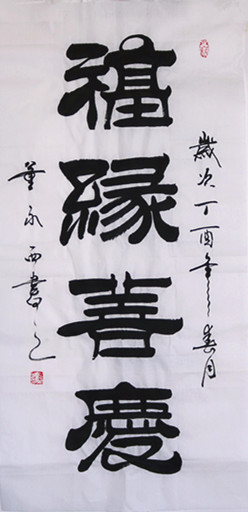 福緣善慶
歲次丁酉年春月
董永西書之